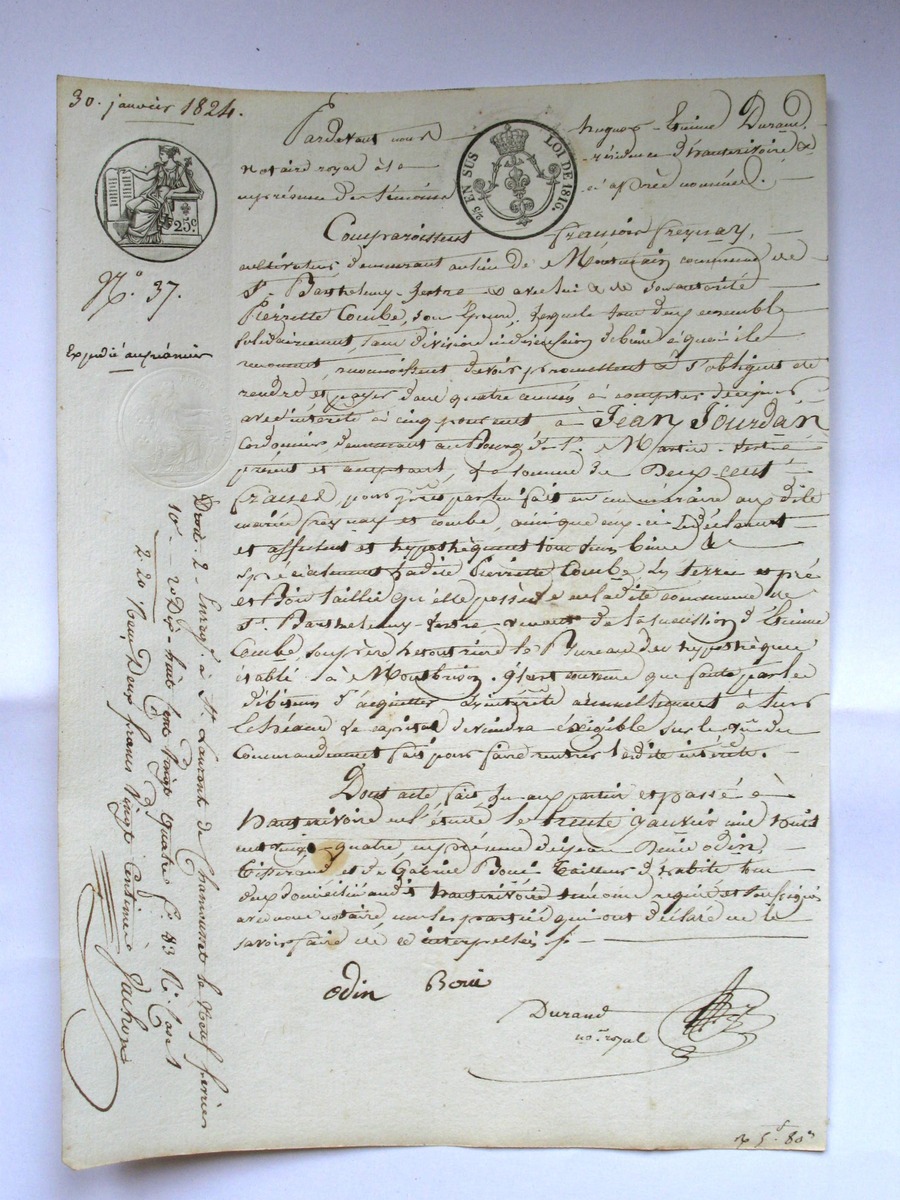 30. janvier 1824.
Pardevant nous hugues-Etienne Durand,
notaire royal à la résidence d'hauterivoire &
en présence des témoins ci après nommés.
25 EN SUS LOI DE 1816.
25c
N.° 37.
Expedié au créancier
Comparoissent François Freynay,
cultivateur demeurant au lieu de commune de
St. Barthelemy-Lestra & avec lui & de son autorité
Pierrette Combe, son épouse, lesquels tous deux ensemble
solidairement, sans division ni discussion de biens à quoi ils
renoncent, reconnoissent devoir promettent & s'obligent de
rendre et payer dans quatre années à compter de ce jour
avec intérêts à cinq pour cent à Jean Jourdan
Cordonnier, demeurant au Bourg de St. Martin-Lestra
présent et acceptant, la somme de Deux-cent
francs, pour prêt par lui fait en numéraire aux dits
mariés Freynay et Combe, ainsi que ceux-ci le déclarent
et affectent et hypothèquent tous leurs biens &
spécialement ladite Pierrette Combe les terres et pré
et Bois taillis qu'elle possède en ladite commune de
St. Barthelemy-Lestra venant de la succession d'Etienne
Combe, son père, le tout rière le Bureau des hypothèques
établi à Montbrison. Il est convenu que faute par les
débiteurs d'acquitter les intérêts annuellement à leurs
échéances le capital deviendra éxigible sur le vu du
Commandement fait pour faire rentrer lesdits intérêts.
Dont acte, fait lu aux parties et passé à
hauterivoire en l'étude le trente janvier mil huit
cent vingt-quatre en présence de odin,
tisserand et de Gabriel Boué tailleur d'habits tous
deux domiciliés audit hauterivoire témoins requis et soussignés
avec nous notaire, non les parties qui ont déclaré ne le
savoir faire de ce interpellés
odin Boué
Durand
no.re royal
Droit. 2 - Enreg. à St. Laurent de Chamousset le Neuf fevrier
10. - 20 Dix-huit cent vingt quatre f.° 83 R.° Case 1
2. 20 Reçu Deux francs vingt centimes
5 f. 80